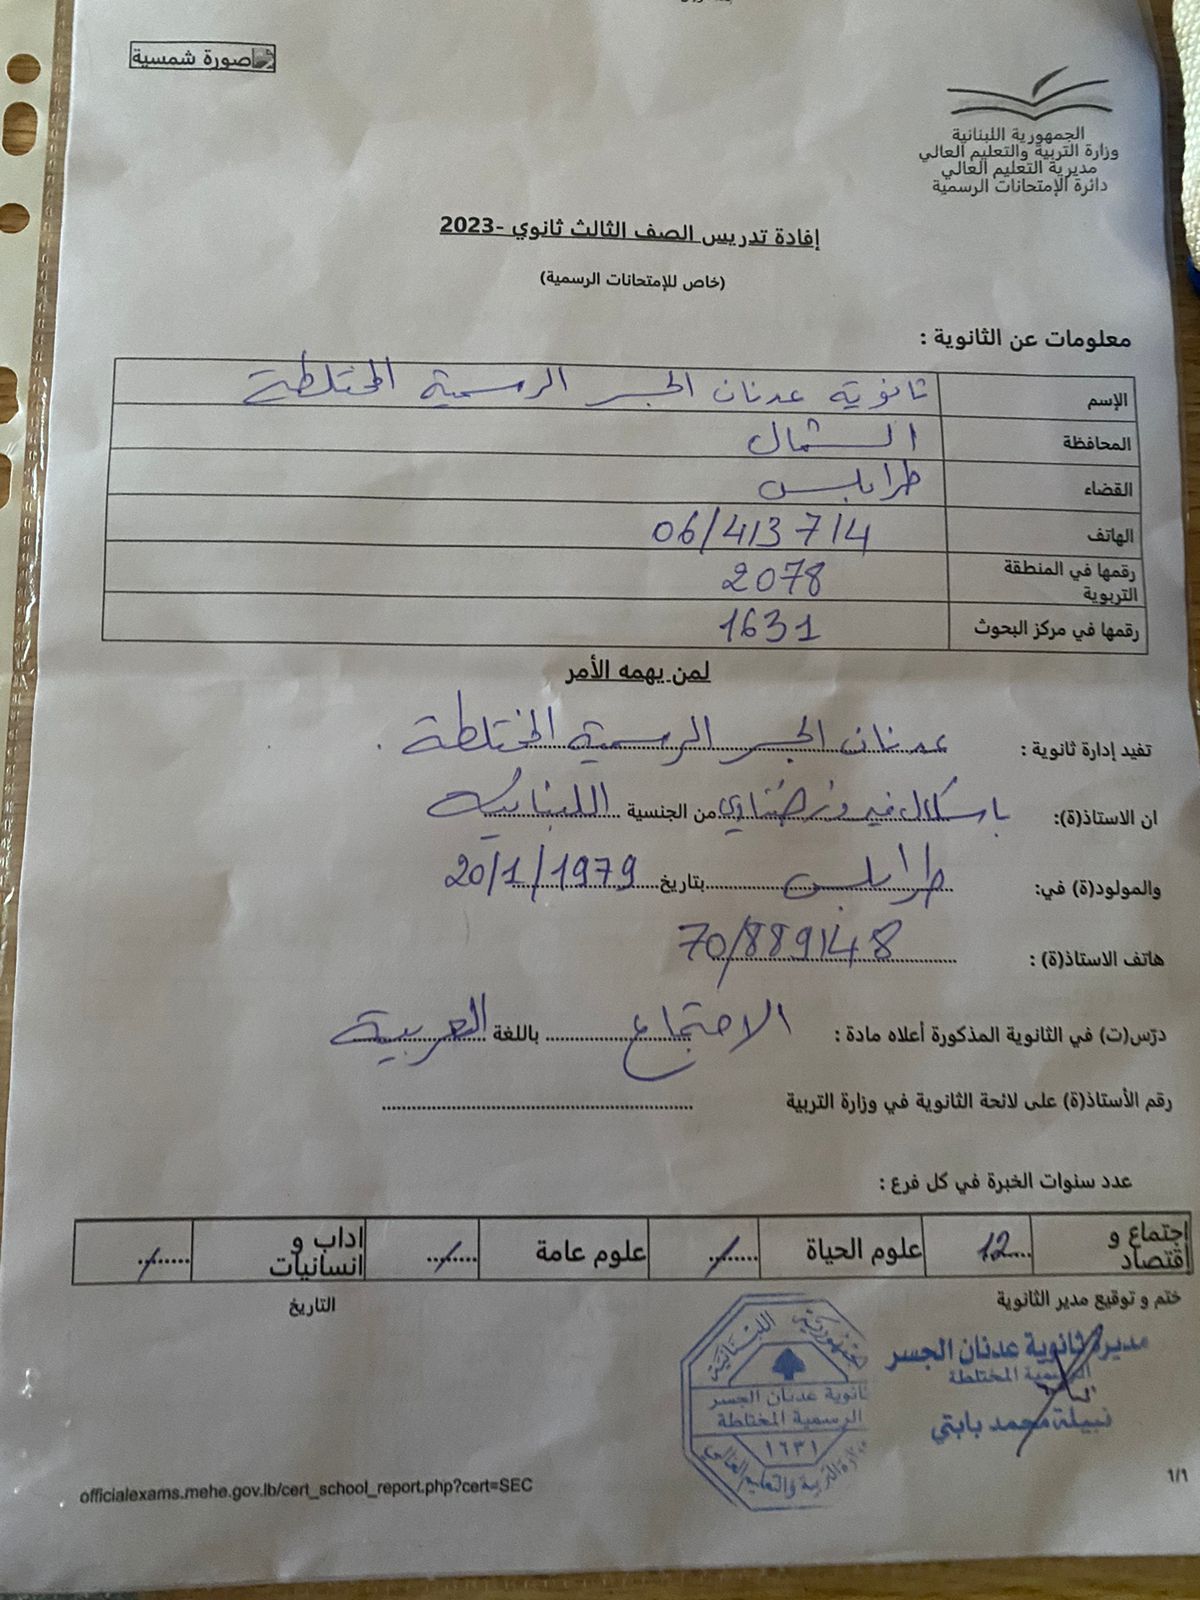 صورة شمسية
الجمهورية اللبنانية
وزارة التربية والتعليم العالي
مديرية التعليم العالي
دائرة الإمتحانات الرسمية
إفادة تدريس الصف الثالث ثانوي -2023
(خاص للإمتحانات الرسمية)
معلومات عن الثانوية :
الإسم ثانوية عدنان الجسر الرسمية المختلطة
المحافظة الشمال
القضاء طرابلس
الهاتف 06/413714
رقمها في المنطقة التربوية 2078
رقمها في مركز البحوث 1631
لمن يهمه الأمر
تفيد إدارة ثانوية : عدنان الجسر الرسمية المختلطة .
ان الاستاذ(ة): باسكال فيروز ضناوي من الجنسية اللبنانية
والمولود(ة) في: طرابلس بتاريخ 20/1/1979
هاتف الاستاذ(ة) : 70/889148
درّس(ت) في الثانوية المذكورة أعلاه مادة : الاجتماع باللغة العربية
رقم الأستاذ(ة) على لائحة الثانوية في وزارة التربية
عدد سنوات الخبرة في كل فرع :
إجتماع و اقتصاد 12 علوم الحياة / علوم عامة / اداب و انسانيات /
ختم و توقيع مدير الثانوية التاريخ
مديرة ثانوية عدنان الجسر
الرسمية المختلطة
نبيلة محمد بابتي
الجمهورية اللبنانية
ثانوية عدنان الجسر
الرسمية المختلطة
١٦٣١
وزارة التربية والتعليم العالي
officialexams.mehe.gov.lb/cert_school_report.php?cert=SEC 1/1